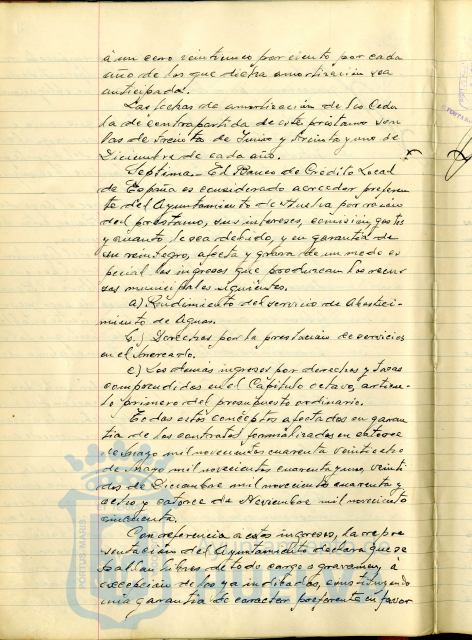 á un cero veintiuno por ciento por cada
año de los que dicha amortización sea
anticipada.
Las fechas de amortización de las Cedu
las de contrapartida de este préstamo son
las de treinta de Junio y treinta y uno de
Diciembre de cada año.
Septima.- El Banco de Crédito Local
de España es considerado acreedor preferen
te del Ayuntamiento de Huelva por razón
del prestamo, sus intereses, comisión, gastos
y cuanto le sea debido, y en garantía de
su reintegro, afecta y grava de un modo es
pecial los ingresos que produzcan los recur
sos municipales siguientes.
a) Rendimiento del servicio de Abasteci-
miento de Aguas.
b) Derechos por la prestación de servicios
en el Mercado.
c) Los demas ingresos por derechos y tasas
comprendidos en el Capítulo octavo, articu-
lo primero del presupuesto ordinario.
Todos estos conceptos afectados en garan
tia de los contratos formalizados en catorce
de Mayo mil novecientos cuarenta veintiocho
de Mayo mil novecientos cuarenta y uno, veinti
dos de Diciembre mil novecientos cuarenta y
ocho y catorce de Noviembre mil novecientos
cincuenta.
Con referencia a estos ingresos, la repre
sentación del Ayuntamiento declara que se
hallan libres de todo cargo o gravamen, á
excepción de los ya indicados, constituyendo
una garantia de caracter preferente en favor
PORTUS MARIS